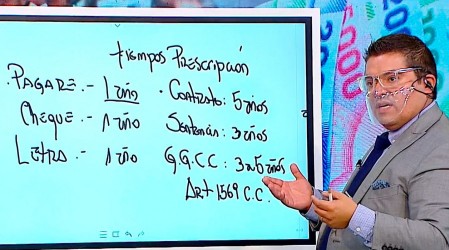 tiempos Prescripción
. PAGARÉ.- 1 año
CHEQUE.- 1 año
LETRA.- 1 año
. Contrato: 5 años
Sentencia: 3 años
G.G.C.C: 3 a 5 años
Art 1569 C.C.